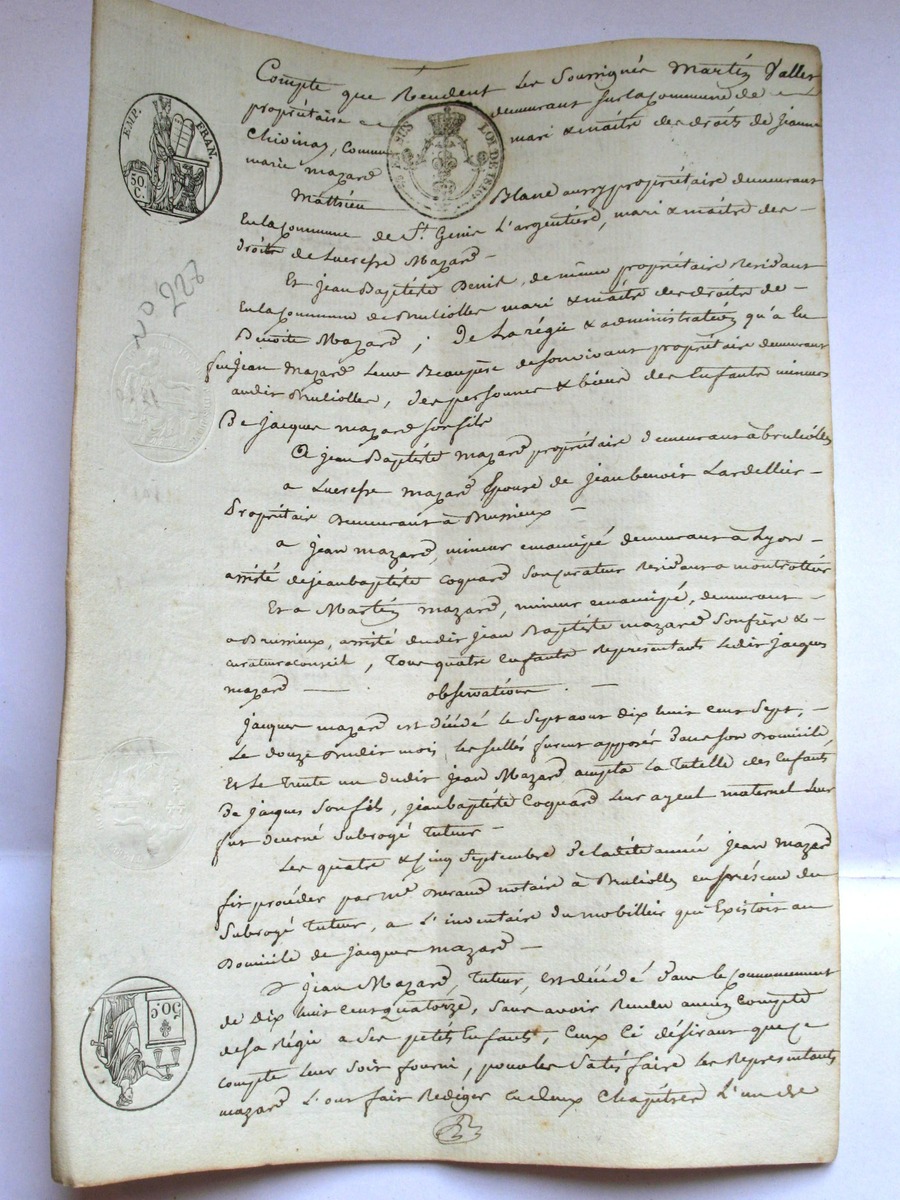 Compte que Rendent Les Soussignés Martin Vallet
propriétaire demeurant sur la commune de
Chivinay, comme mari & maitre des droits de jeanne
marie mazard
Mathieu Blanc aussy propriétaire demeurant
En la commune de St. Genis L'argentiere, mari & maitre des
droits de Lucresse Mazard
Et jean Baptiste Benit, de même propriétaire Residant
En la commune de Brulliolles mari & maitre des droits de
Benoite Mazard ; De La régie & administration qu'a Eu
feu jean Mazard Leur Beaupère de son vivant propriétaire demeurant
audit Brulliolles, des personnes & biens des Enfants mineurs
De jacques mazard son fils
A jean Baptiste mazard propriétaire demeurant à brulliolles
a Lucresse mazard Epouse de jean benoit Lardellier
Propriétair Demeurant à Brussieux
a jean mazard, mineur emancipé demeurant à Lyon
assisté de jean baptiste Coquard son curateur Residant a montrottier
Et a Martin mazard, mineur emancipé, demeurant
a Brussieux, assisté dudit jean Baptiste mazard Son frère &
curateur conseil, Tous quatre enfants Representants Ledit jacques
mazard
observations
jacques mazard est décédé le Sept aout dix huit cent Sept,
Le douze Dudit mois les scellés furent apposés dans son Domicile
Et Le Trente un dudit jean Mazard accepta La Tutelle des Enfants
De jacques Son fils, jean baptiste Coquard Leur ayeul maternel Leur
fut donné Subrogé Tuteur
Les quatre & Cinq Septembre De ladite année jean Mazard
fit procéder par me Durand notaire à Brulliolles en présence du
Subrogé Tuteur, a L'inventaire du mobillier qui Existoit au
Domicile de jacques Mazard
jean Mazard, Tuteur, est décédé dans le Commencement
de Dix huit Cent quatorze, Sans avoir Rendu aucun Compte
de sa Régie a Ses petits Enfants, Ceux Ci désirant que Ce
Compte Leur Soit fourni, pour les Satisfaire les Representants
mazard L'ont fait Rediger En deux Chapitres L'un de
EMP. FRAN.
50 C.
LOI DE
No 227
50 C.